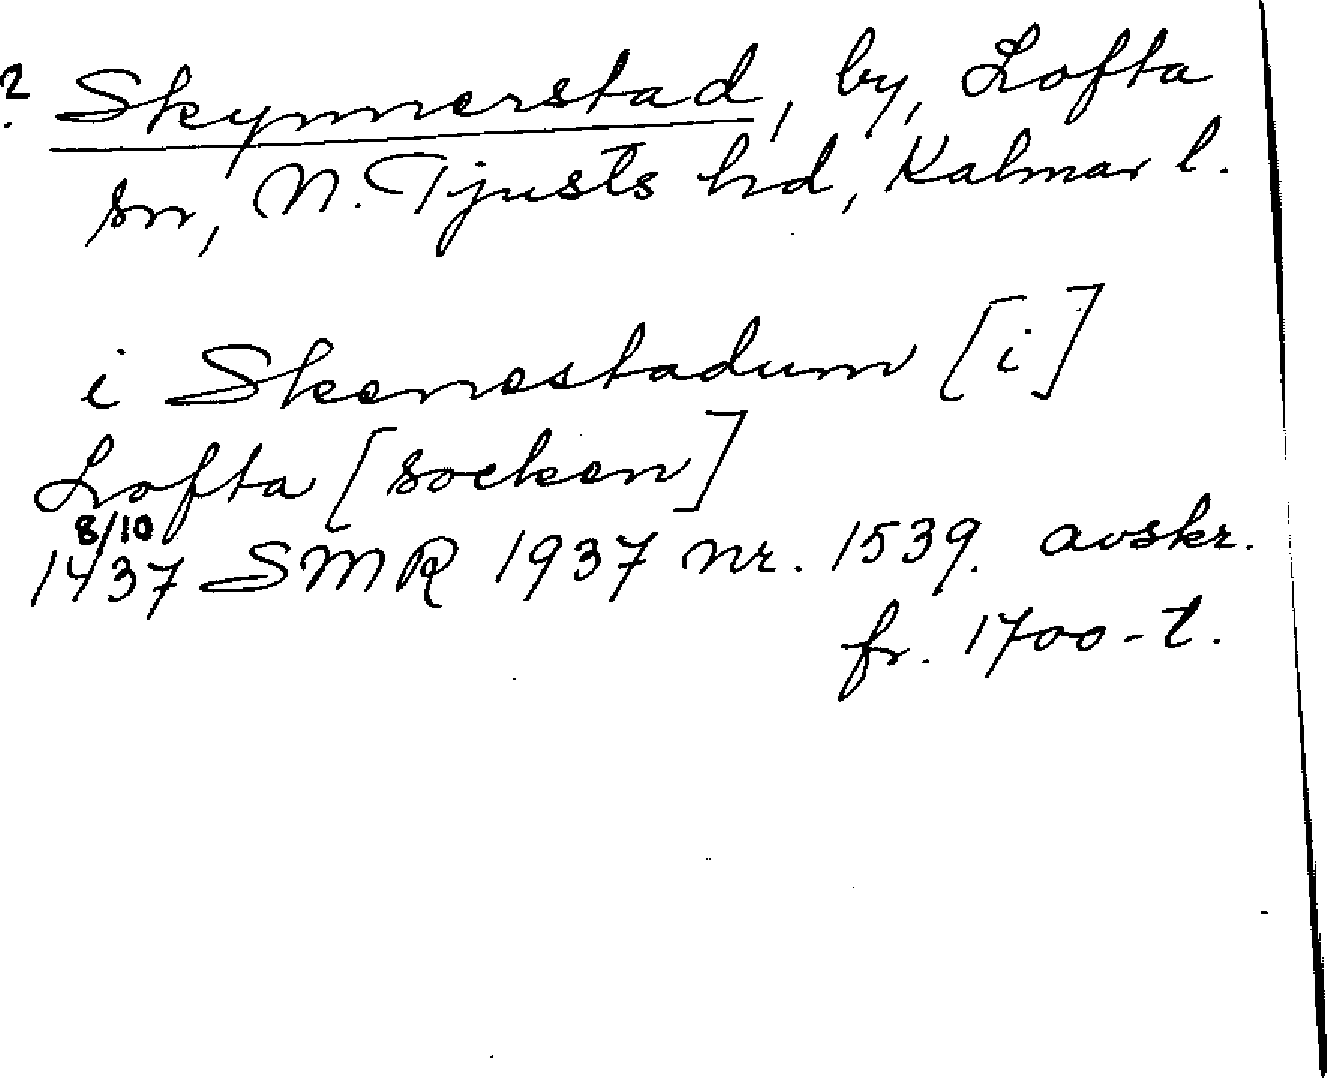 ? Skynnerstad, by, Lofta
sn, N. Tjusts hd, Kalmar l.
i Skenestadum [i]
Lofta [socken]
8/10
1437 SMR 1937 nr. 1539. avskr.
fr. 1700-t.